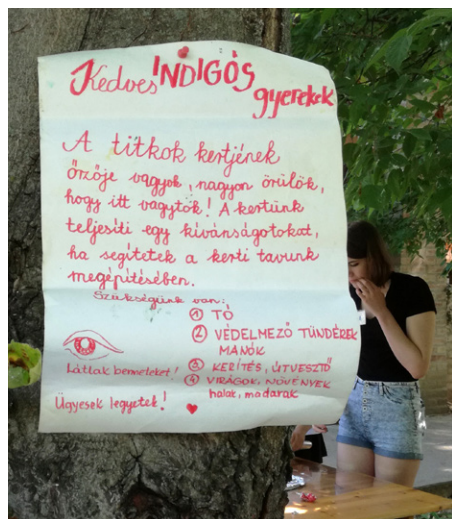 Kedves INDIGÓS
gyerekek
A titkok kertjének
őrzője vagyok, nagyon örülök,
hogy itt vagytok! A kertünk
teljesíti egy kívánságotokat,
ha segítetek a kerti tavunk
megépítésében.
Szükségünk van:
① TÓ
② VÉDELMEZŐ TÜNDÉREK
MANÓK
③ KERÍTÉS, ÚTVESZTŐ
④ VIRÁGOK, NÖVÉNYEK
halak, madarak
Látlak benneteket!
Ügyesek legyetek! ♥